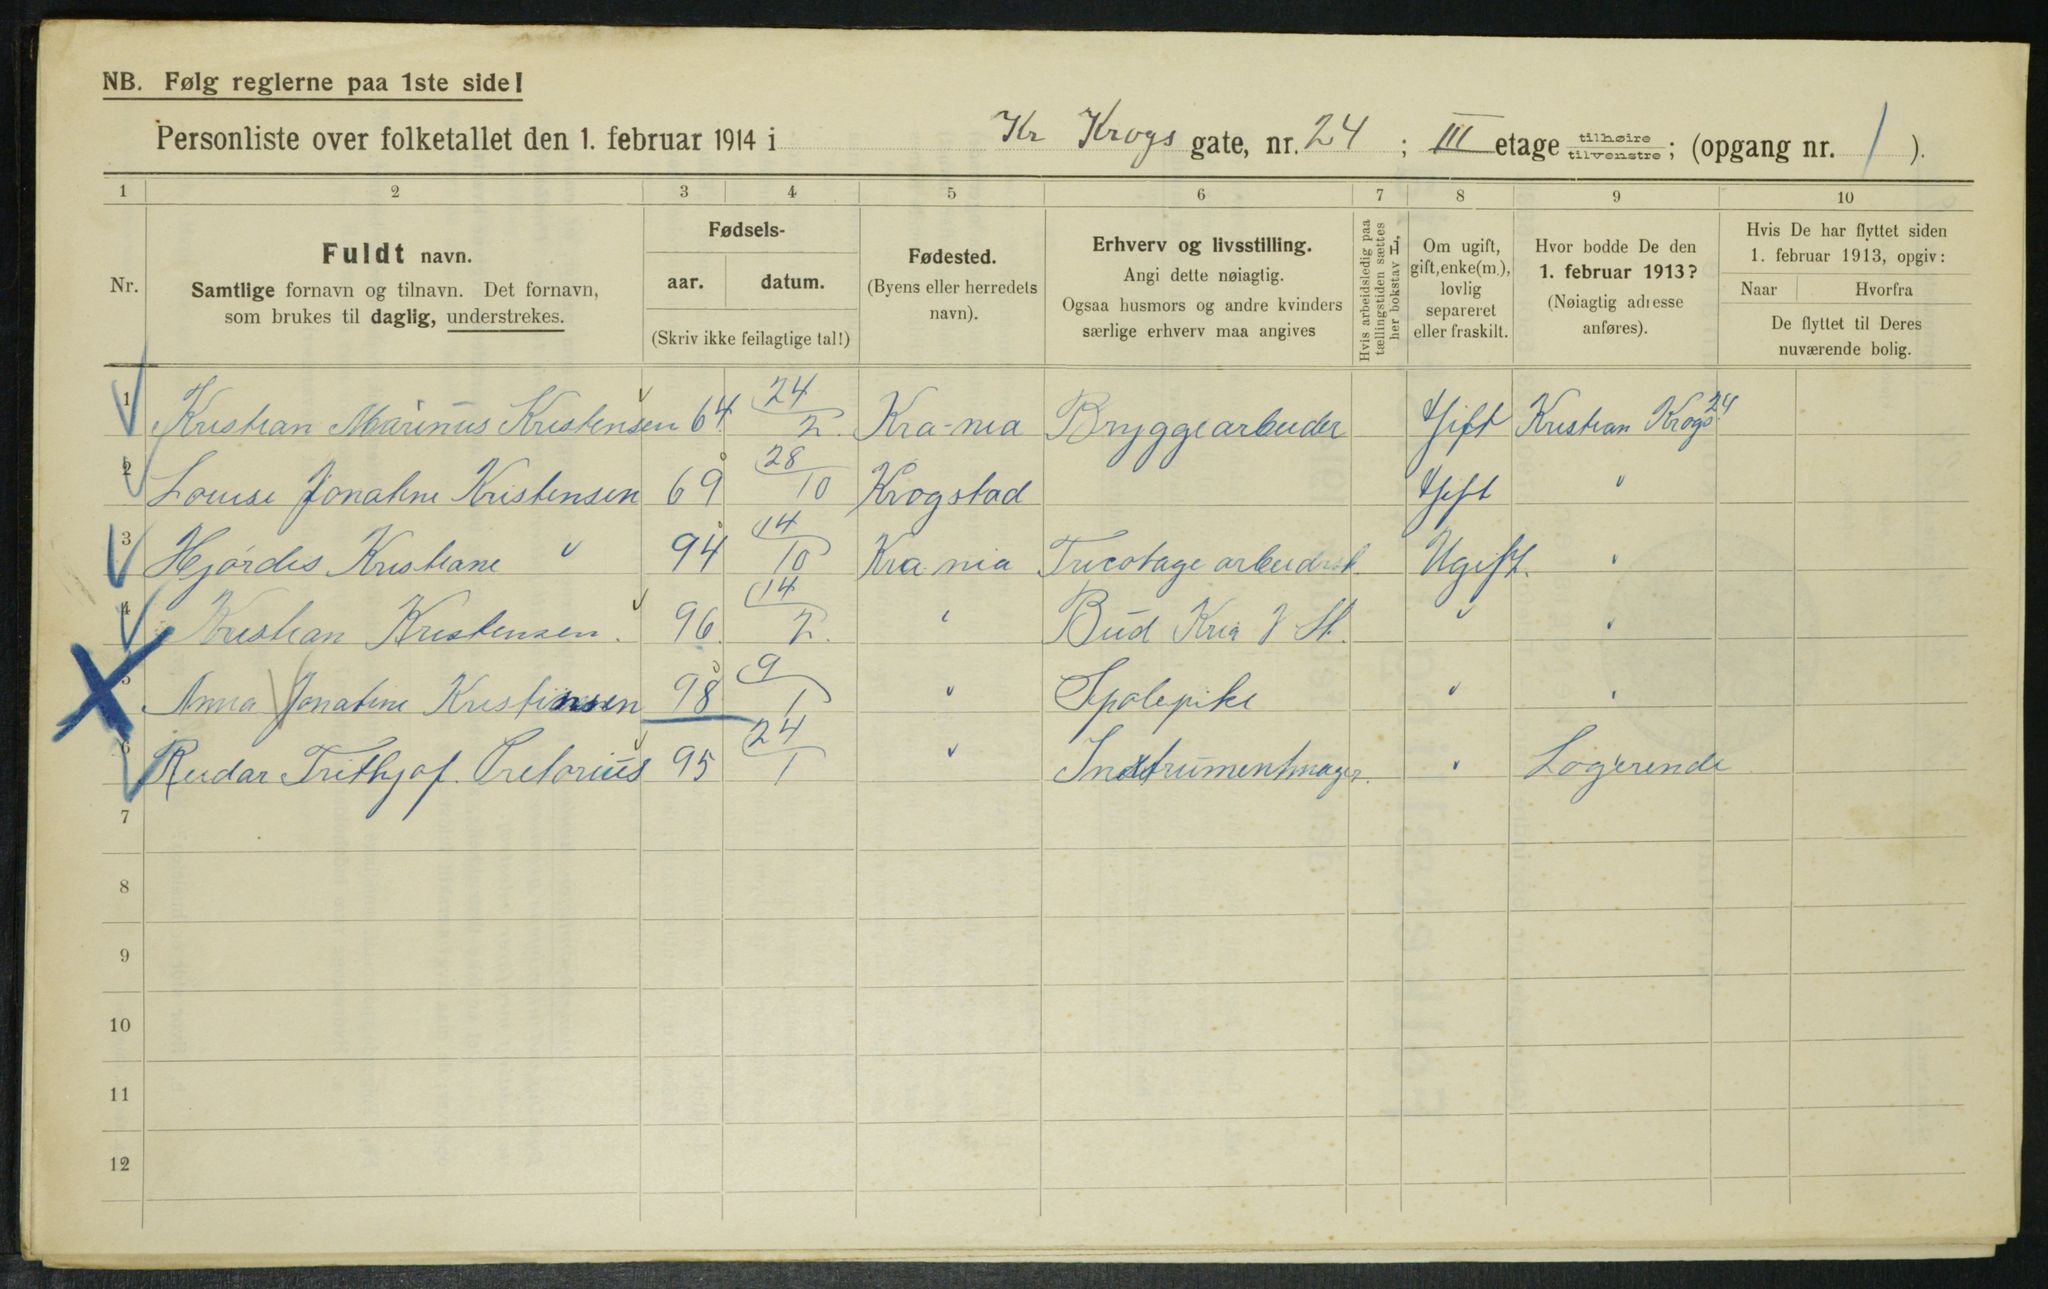 NB. Følg reglerne paa 1ste side!
Personliste over folketallet den 1. februar 1914 i Kr Krogs gate, nr. 24 ; III etage tilhøire tilvenstre ; (opgang nr. 1 ).
1 2 3 4 5 6 7 8 9 10
Nr.
Fuldt navn.
Samtlige fornavn og tilnavn. Det fornavn,
som brukes til daglig, understrekes.
Fødsels-
aar. datum.
(Skriv ikke feilagtige tal!)
Fødested.
(Byens eller herredets
navn).
Erhverv og livsstilling.
Angi dette nøiagtig.
Ogsaa husmors og andre kvinders
særlige erhverv maa angives
Hvis arbeidsledig paa
tællingstiden sættes
her bokstav L.
Om ugift,
gift, enke(m.),
lovlig
separeret
eller fraskilt.
Hvor bodde De den
1. februar 1913?
(Nøiagtig adresse
anføres).
Hvis De har flyttet siden
1. februar 1913, opgiv:
Naar Hvorfra
De flyttet til Deres
nuværende bolig.
1 Kristian Marinus Kristensen 64 24/2. Kra-nia Bryggearbeider Gift Kristian Krogs 24
2 Louise Jonatine Kristensen 69 28/10 Krogstad Gift "
3 Hjørdis Kristiane " 94 14/10 Kra nia Tricotage arbeidersk. Ugift. "
4 Kristian Kristensen. 96. 14/2. " Bud Kria " "
5 Anna Jonatine Kristinsen 98 9/1 " Spolepike " "
6 Reidar Frithjof. Pretorius 95 24/1 " Instrumentmager. " Logerende
7
8
9
10
11
12